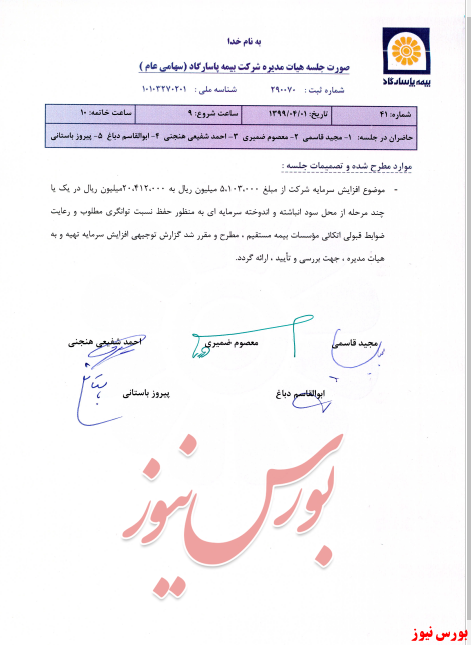 به نام خدا
صورت جلسه هیات مدیره شرکت بیمه پاسارگاد (سهامی عام )
شماره ثبت : ۲۹۰۰۷۰ شناسه ملی : ۱۰۱۰۳۲۷۰۲۰۱
بیمه پاسارگاد
شماره: ۴۱ تاریخ: ۱۳۹۹/۰۴/۰۱ ساعت شروع: ۹ ساعت خاتمه: ۱۰
حاضران در جلسه: ۱- مجید قاسمی ۲- معصوم ضمیری ۳- احمد شفیعی هنجنی ۴- ابوالقاسم دباغ ۵- پیروز باستانی
موارد مطرح شده و تصمیمات جلسه :
- موضوع افزایش سرمایه شرکت از مبلغ ۵.۱۰۳.۰۰۰ میلیون ریال به ۲۰.۴۱۲.۰۰۰میلیون ریال در یک یا
چند مرحله از محل سود انباشته و اندوخته سرمایه ای به منظور حفظ نسبت توانگری مطلوب و رعایت
ضوابط قبولی اتکائی مؤسسات بیمه مستقیم ، مطرح و مقرر شد گزارش توجیهی افزایش سرمایه تهیه و به
هیات مدیره ، جهت بررسی و تأیید ، ارائه گردد.
مجید قاسمی معصوم ضمیری احمد شفیعی هنجنی
ابوالقاسم دباغ پیروز باستانی
بورس نیوز
بورس نیوز